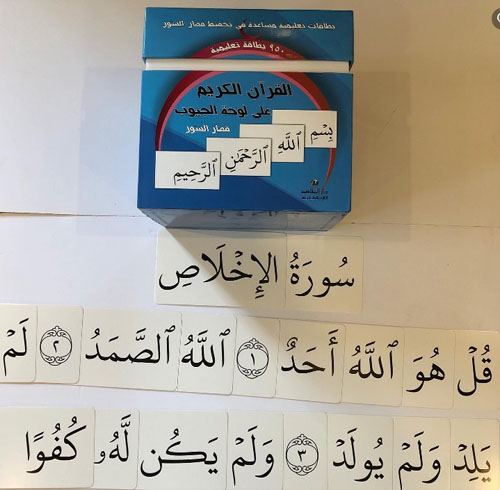 بطاقات تعليمية مساعدة في تحفيظ قصار السور
٩٥٠ بطاقة تعليمية
القرآن الكريم
على لوحة الجيوب
قصار السور
بِسْمِ
ٱللَّهِ
ٱلرَّحْمَٰنِ
ٱلرَّحِيمِ
سُورَةُ الإِخْلَاصِ
قُلْ هُوَ ٱللَّهُ أَحَدٌ ١ ٱللَّهُ ٱلصَّمَدُ ٢ لَمْ
يَلِدْ وَلَمْ يُولَدْ ٣ وَلَمْ يَكُن لَّهُۥ كُفُوًا